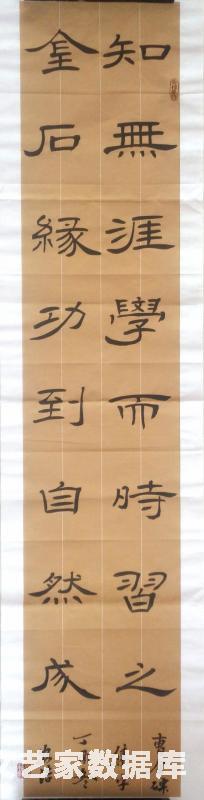 知無涯學而時習之
金石緣功到自然成
艺家数据库